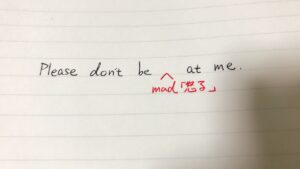 Please don't be ^ at me.
mad「怒る」